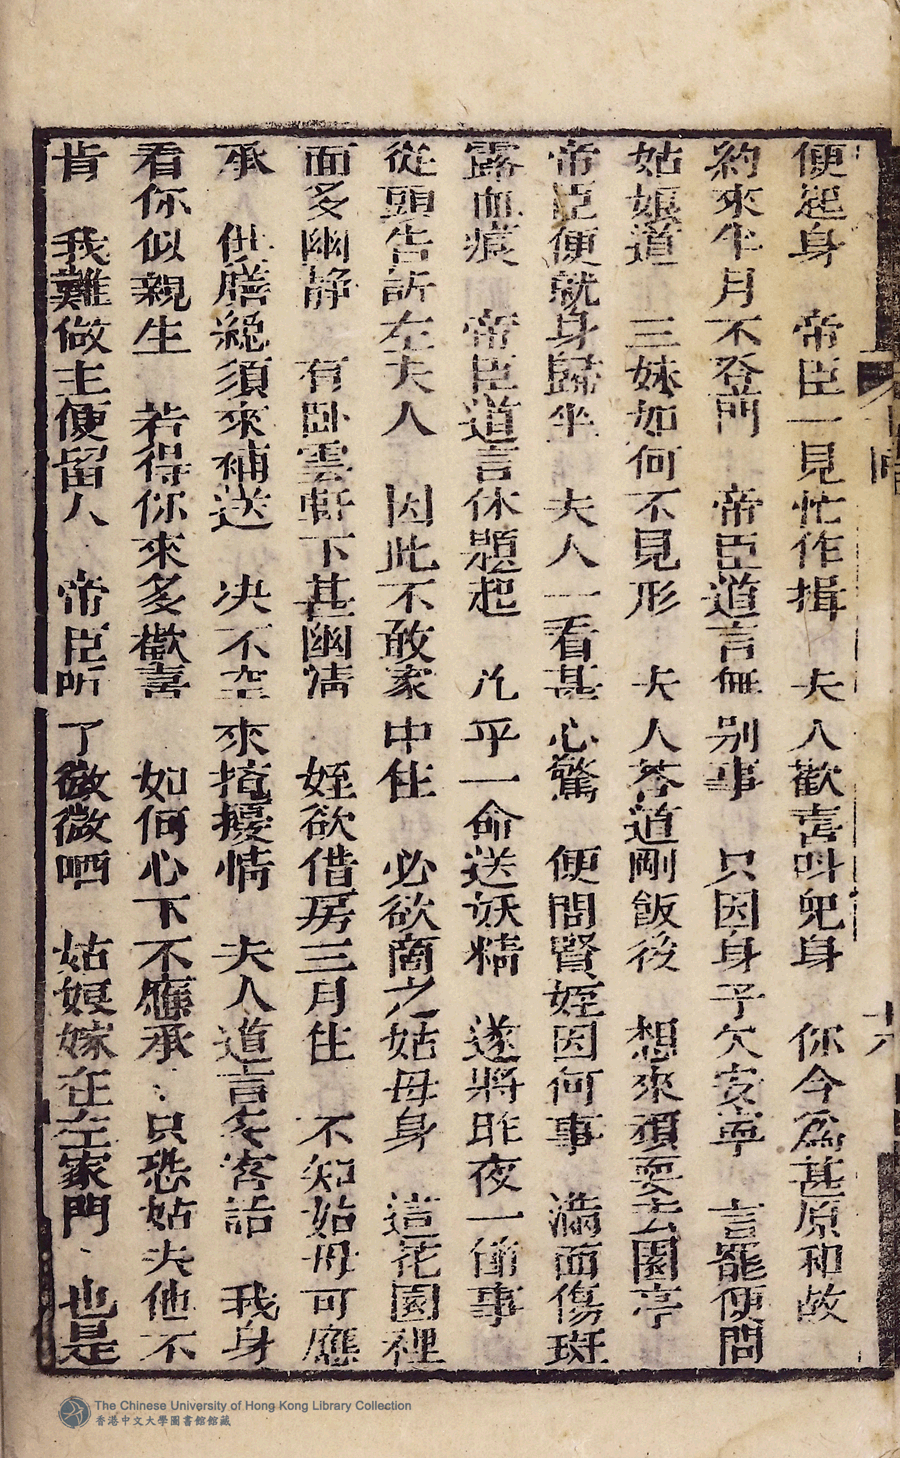 便起身　帝臣一見忙作揖　夫人歡喜呌兜身　你今爲甚原和故
約來半月不登門　帝臣道言無別事　只因身子欠安寧　言罷便問
姑娘道　三妹如何不見形　夫人荅道剛飯後　想來須耍去園亭
帝臣便就身歸坐　夫人一看甚心驚　便問賢姪因何事　滿面傷斑
露血痕　帝臣道言休題起　凢乎一命送妖精　遂將昨夜一箇事
從頭告訴左夫人　因此不敢家中住　必欲商之姑母身　這花園裡
面多幽静　有卧雲軒下甚幽淸　姪欲借房三月住　不知姑母可應
承　供膳緫須來補送　决不空來擾情　夫人道言客話　我身
看你似親生　若得你來多歡喜　如何心下不應承　只恐姑夫他不
肯　我難做主便留人　帝臣听了微微哂　姑娘嫁在左家門　也是
十六
The Chinese University of Hong Kong Library Collection
香港中文大學圖書館館藏